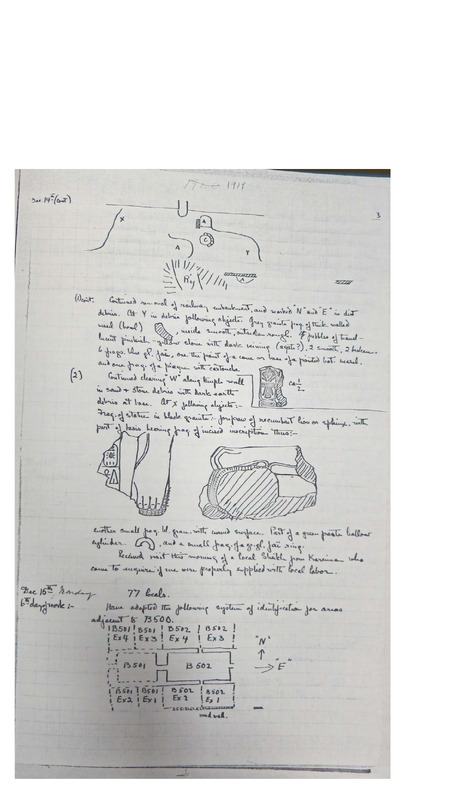 Dec 1919
Dec 14th (cont)
3
X
A
C
A
Y
Ry
A
Continued removal of railway embankment, and worked "N" and "E" in dirt
debris. At Y in debris following objects. Grey granite frag of thick walled
vessel (bowl) inside smooth, outside rough. 4 pebbles of trans-
lucent pinkish-yellow stone with dark veining (agate?), 2 smooth, 2 broken.
6 frags. blue gl. fai., one the point of a cone or base of a pointed bot. vessel.
and one frag. of a plaque with cartouche.
(2) Continued clearing W along temple wall
ca ½.
in sand & stone debris with dark earth
debris at base. At X following objects:-
Frag. of statue in black granite:- forepaw of recumbent lion or sphinx, with
part of basis bearing frag of incised inscription thus:-
another small frag. bl. gran. with curved surface. Part of a green faience hollow
cylinder and a small frag. of a g. gl. fai ring.
Received visit this morning of a local Sheikh from Kareima who
came to inquire if we were properly supplied with local labor.
Dec 15th Monday
77 locals.
6th day of work:-
Have adopted the following system of identification for areas
adjacent to B500.
B501 B501 B502 B502
Ex 4 Ex 3 Ex 4 Ex 3
"N"
B501 B502
"E"
B501 B501 B502 B502
Ex 2 Ex 1 Ex 2 Ex 1